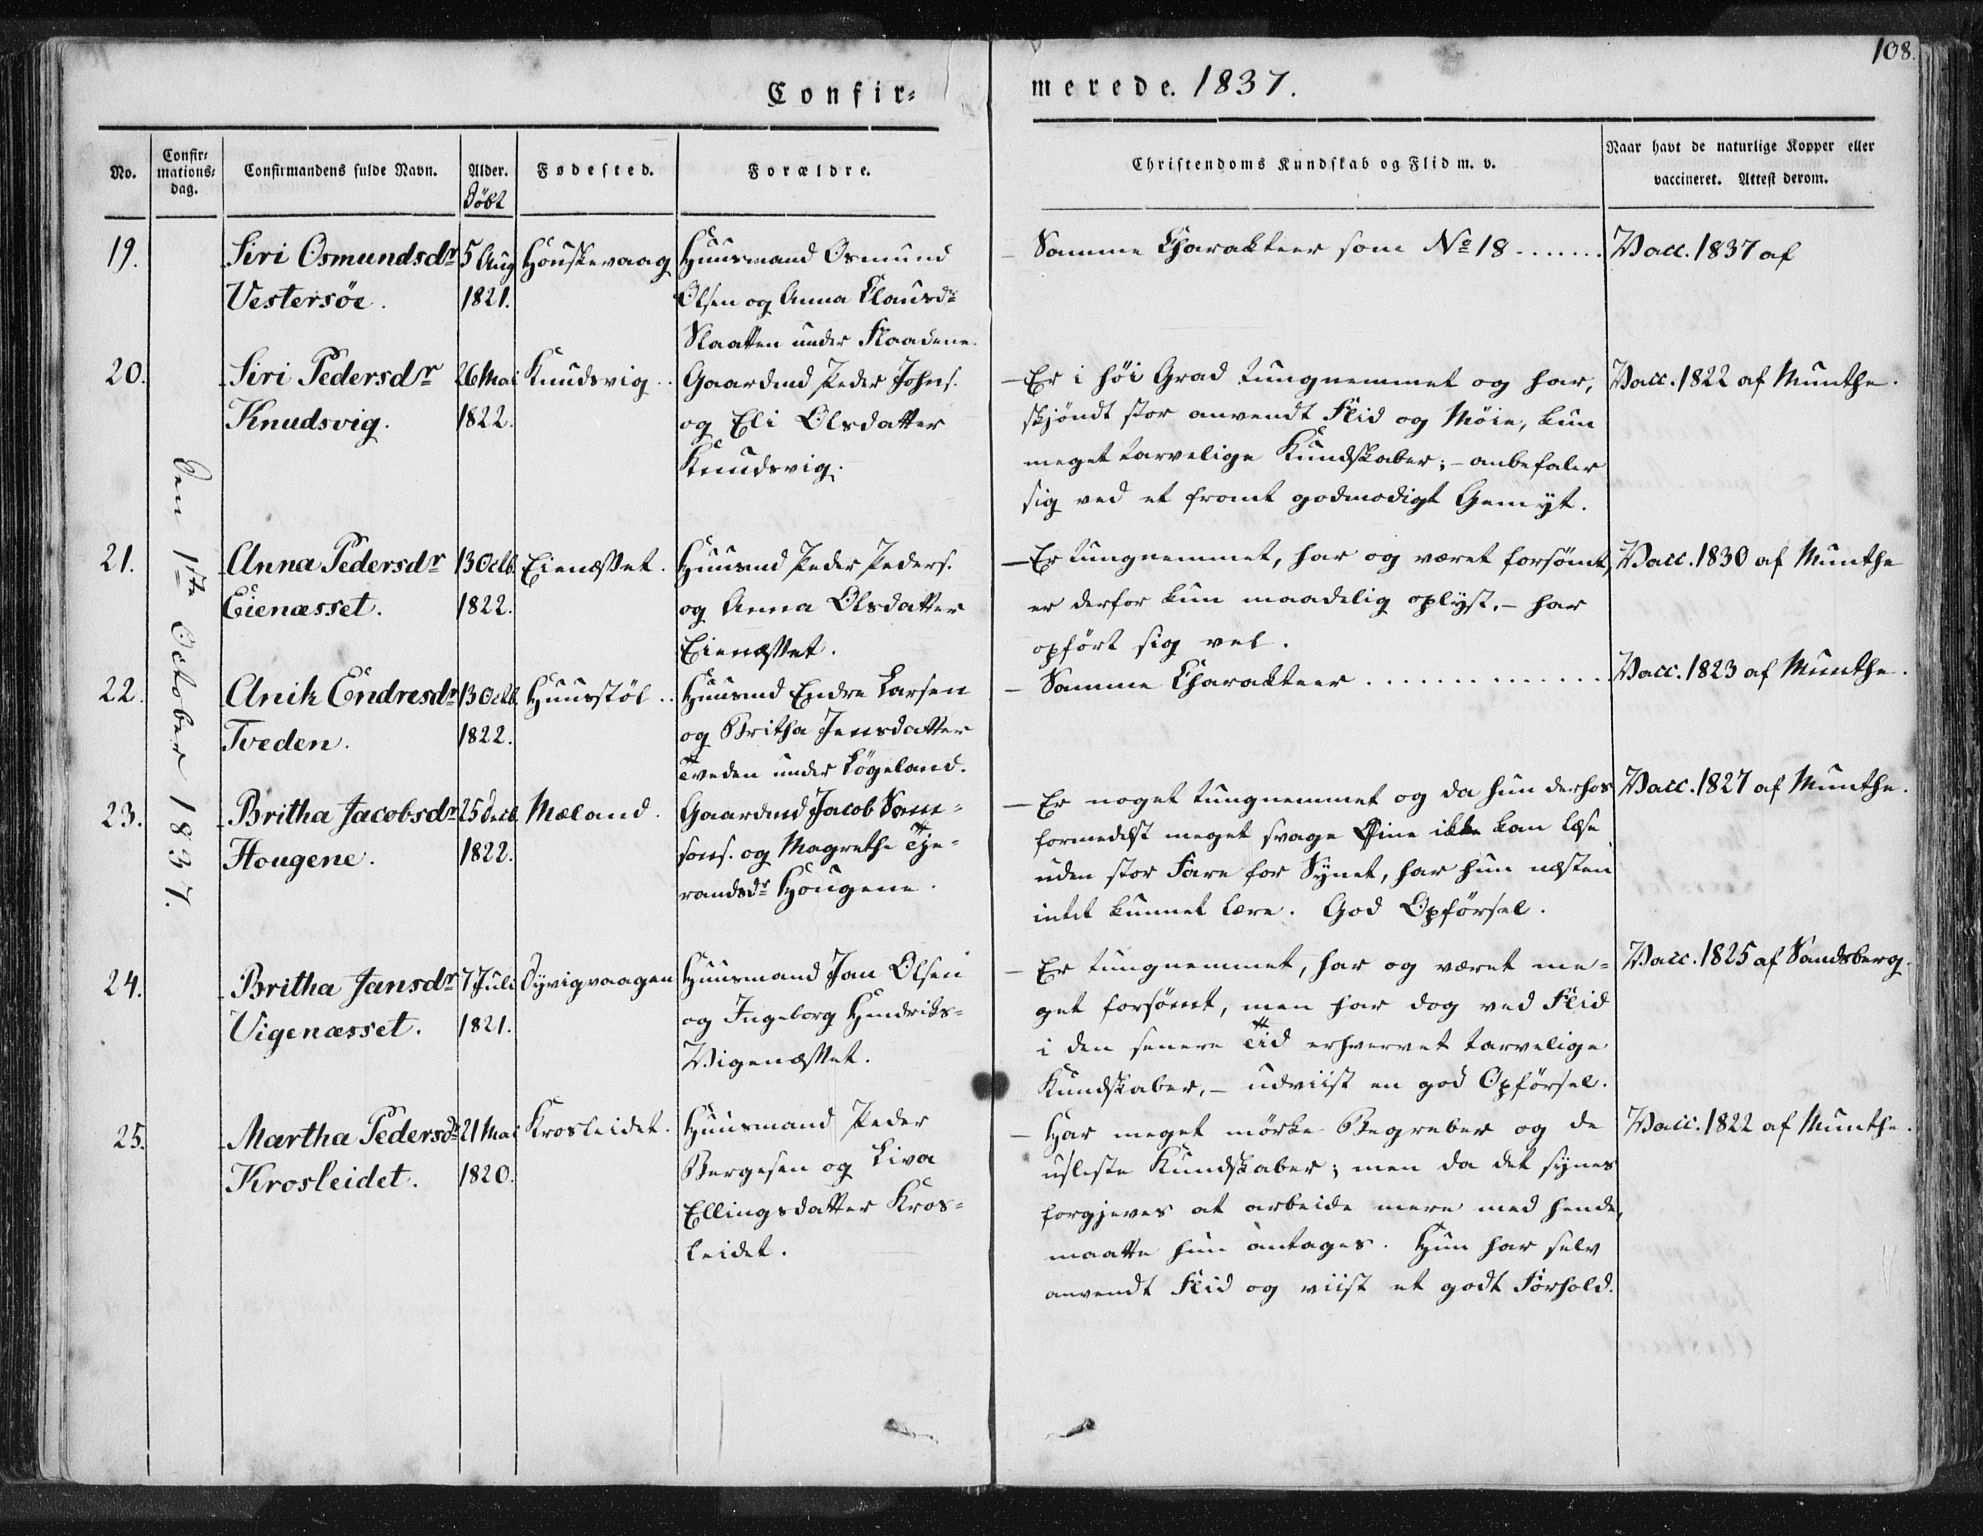 108.
Confir=
merede. 1837.
No.
Confir=
mations=
dag.
Confirmandens fulde Navn.
Alder.
Döbt
Fødested.
Forældre.
Christendoms Kundskab og Flid m. v.
Naar havt de naturlige Kopper eller
vaccineret. Attest derom.
Den 1ste October 1837.
19.
Siri Osmundsdr
Vestersöe.
5 Aug
1821.
Houskevaag
Huusmand Osmund
Olsen og Anna Clausdr
Slaatten under Flaadene.
– Samme Charakteer som No 18 .......
Vacc. 1837 af
20.
Siri Pedersdr
Knudsvig.
26 Mai
1822.
Knudsvig ..
Gaardmd Peder Johns.
og Eli Olsdatter
Knudsvig.
– Er i höi Grad tungnemmet og har,
skjöndt stor anvendt Flid og Möie, kun
meget tarvelige Kundskaber; – anbefaler
sig ved et fromt godmodigt Gemyt.
Vacc. 1822 af Munthe.
21.
Anna Pedersdr
Eienæsset.
13 Octb.
1822.
Eienæsset.
Huusmd Peder Peders.
og Anna Olsdatter
Eienæsset.
– Er tungnemmet, har og været forsömt,
er derfor kun maadelig oplyst, – har
opfört sig vel.
Vacc. 1830 af Munthe
22.
Anik Endresdr
Tveden.
13 Octb.
1822.
Huusstöl ..
Huusmd Endre Larsen
og Britha Jensdatter
Tveden under Lögeland.
– Samme Charakteer ..............
Vacc. 1823 af Munthe.
23.
Britha Jacobsdr
Hougene.
25 Decb.
1822.
Mæland.
Gaardmd Jacob Sam=
sons. og Magrethe Tje=
randsdr Hougene.
– Er noget tungnemmet og da hun derhos
formedelst meget svage Öine ikke kan læse
uden stor Fare for Synet, har hun næsten
intet kunnet lære. God Opförsel.
Vacc. 1827 af Munthe.
24.
Britha Jansdr
Vigenæsset.
7 Juli
1821.
Dyvigvaagen
Huusmand Jan Olsen
og Ingeborg Hendriks=
Vigenæsset.
– Er tungnemmet, har og været me=
get forsömt, men har dog ved Flid
i den senere Tid erhvervet tarvelige
Kundskaber, – udviist en god Opförsel.
Vacc. 1825 af Sandsberg.
25.
Martha Pedersdr
Krosleidet.
21 Mai
1820.
Krosleidet.
Huusmand Peder
Bergesen og Liva
Ellingsdatter Kros=
leidet.
– Har meget mörke Begreber og de
usleste Kundskaber; men da det synes
forgjeves at arbeide mere med hende,
maatte hun antages. Hun har selv
anvendt Flid og viist et godt Forhold.
Vacc. 1822 af Munthe.